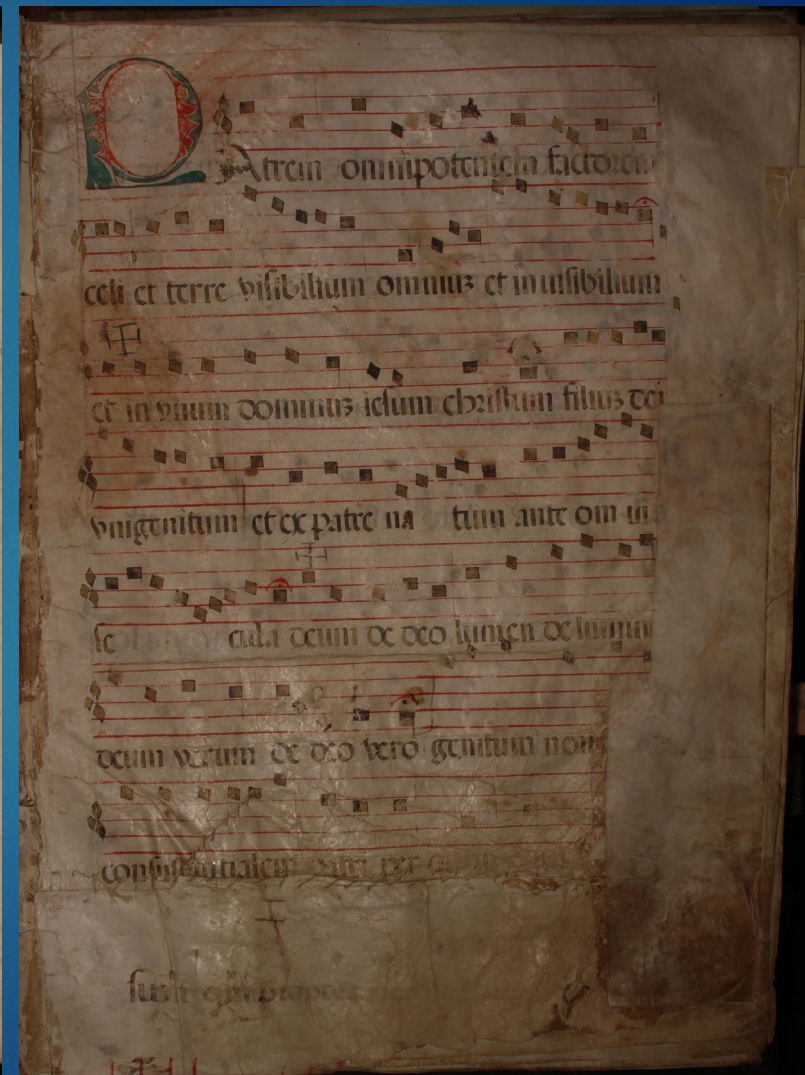 PAtrem omnipotentem factorem
celi et terre visibilium omniuꝫ et inuisibilium
et in vnum dominuꝫ iesum christum filiuꝫ dei
vnigenitum et ex patre na tum ante om ni
se cula deum de deo lumen de lumin
deum verum de deo vero genitum non
consubstantialem patri per